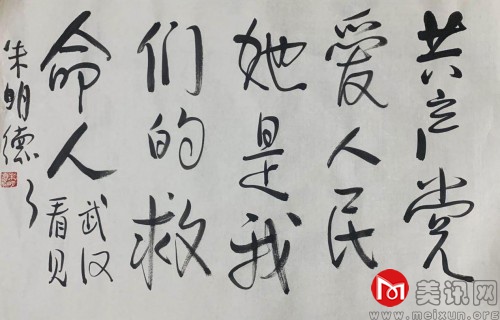 共产党
爱人民
她是我
们的救
命人
武汉
看见
朱明德
美讯网
www.meixun.org